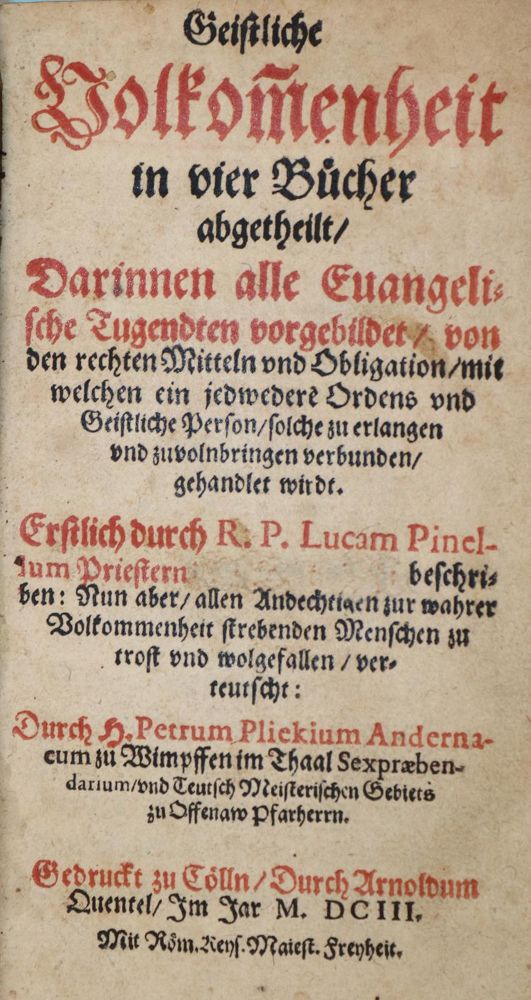 Geistliche
Volkom̃enheit
in vier Bücher
abgetheilt/
Darinnen alle Euangeli⸗
sche Tugendten vorgebildet/ von
den rechten Mitteln vnd Obligation/mit
welchen ein jedwederẽ Ordens vnd
Geistliche Person/solche zu erlangen
vnd zuvolnbringen verbunden/
gehandlet wirdt.
Erstlich durch R. P. Lucam Pinel-
lum Priestern beschri⸗
ben: Nun aber/ allen Andechtigen zur wahrer
Volkommenheit strebenden Menschen zu
trost vnd wolgefallen/ ver⸗
teutscht:
Durch H. Petrum Plickium Anderna-
cum zu Wimpffen im Thaal Sexpræben-
darium/vnd Teutsch Meisterischen Gebiets
zu Offenaw Pfarherrn.
Gedruckt zu Cölln/ Durch Arnoldum
Quentel/ Im Jar M. DCIII.
Mit Röm. Keys. Maiest. Freyheit.